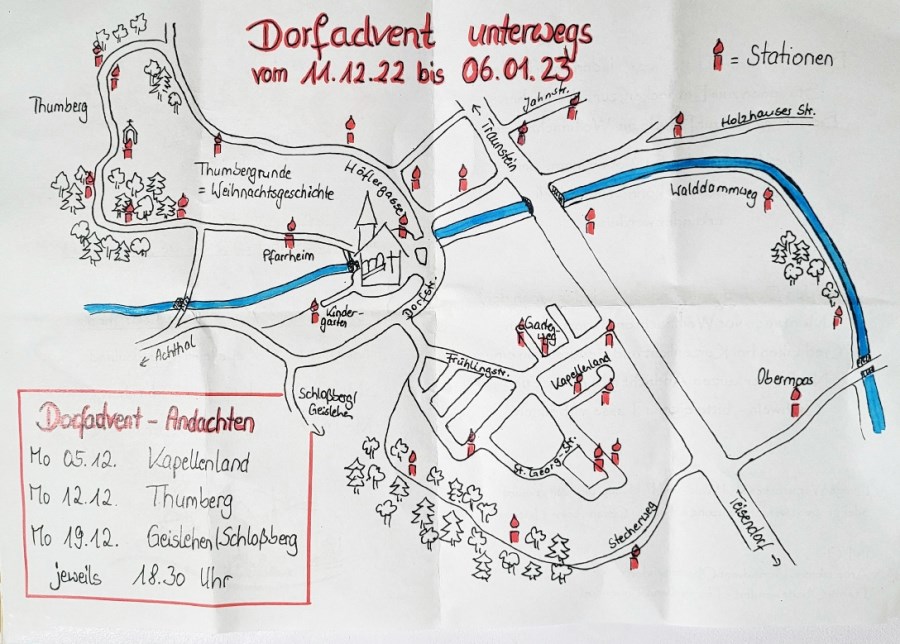 Dorfadvent unterwegs
vom 11.12.22 bis 06.01.23
= Stationen
Jahnstr.
Holzhauser Str.
Traunstein
Thumberg
Thumbergrunde
= Weihnachtsgeschichte
Höflergasse
Walddammweg
Pfarrheim
Kindergarten
Dorfstr.
Achthal
Gartenweg
Frühlingstr.
Kapellenland
Obermoos
Schloßberg/
Geislehen
St. Georg-Str.
Stecherweg
Teisendorf
Dorfadvent - Andachten
Mo 05.12. Kapellenland
Mo 12.12. Thumberg
Mo 19.12. Geislehen/Schloßberg
jeweils 18.30 Uhr